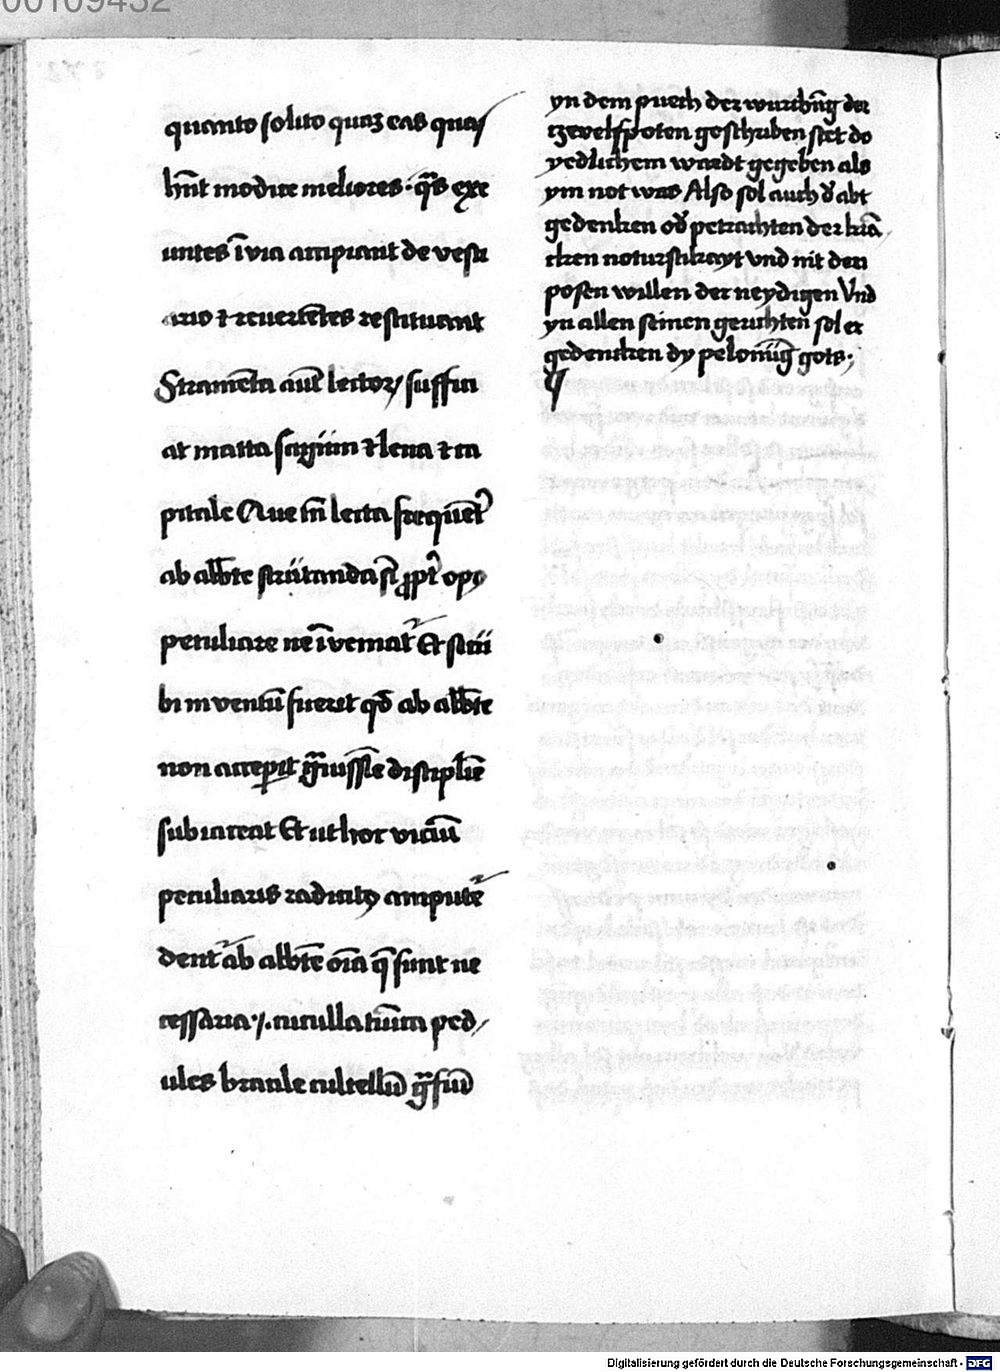 00109432
quanto solito quaz eas quas
hn̄t modice meliores · q̄s exe
untes ī via accipiant de vesti
ario ⁊ reuertētes restituant
Stramēta aut̄ lector) suffici
at matta sagum ⁊ lena ⁊ ca
pitale Que tn̄ lecta frequēt᷑
ab abbt̄e scrutanda st̄ ꝓpt᷑ opꝰ
peculiare ne īveniat᷑ Et si cui
bi inventū fuerit qd̄ ab abbt̄e
non acceperit gͣuissīe discipline
subiaceat Et ut hoc viciū
peculiaris radicitꝰ ampute
dent᷑ ab abbt̄e oīa q̄ sunt ne
cessaria ·/. cuculla tunica ped
ules bracile cultellū gͣfiū
yn dem puech der würchūg der
tzwelfpoten geschriben stet do
yedlichem wardt gegeben als
ym not was Also sol auch d᷑ abt
gedenken od᷑ petrachten der krā
cken noturftikayt vnd nit den
posen willen der neydigen Vnd
yn allen seinen gerichten sol er
gedencken dy pelonūg gots;
Digitalisierung gefördert durch die Deutsche Forschungsgemeinschaft - DFG